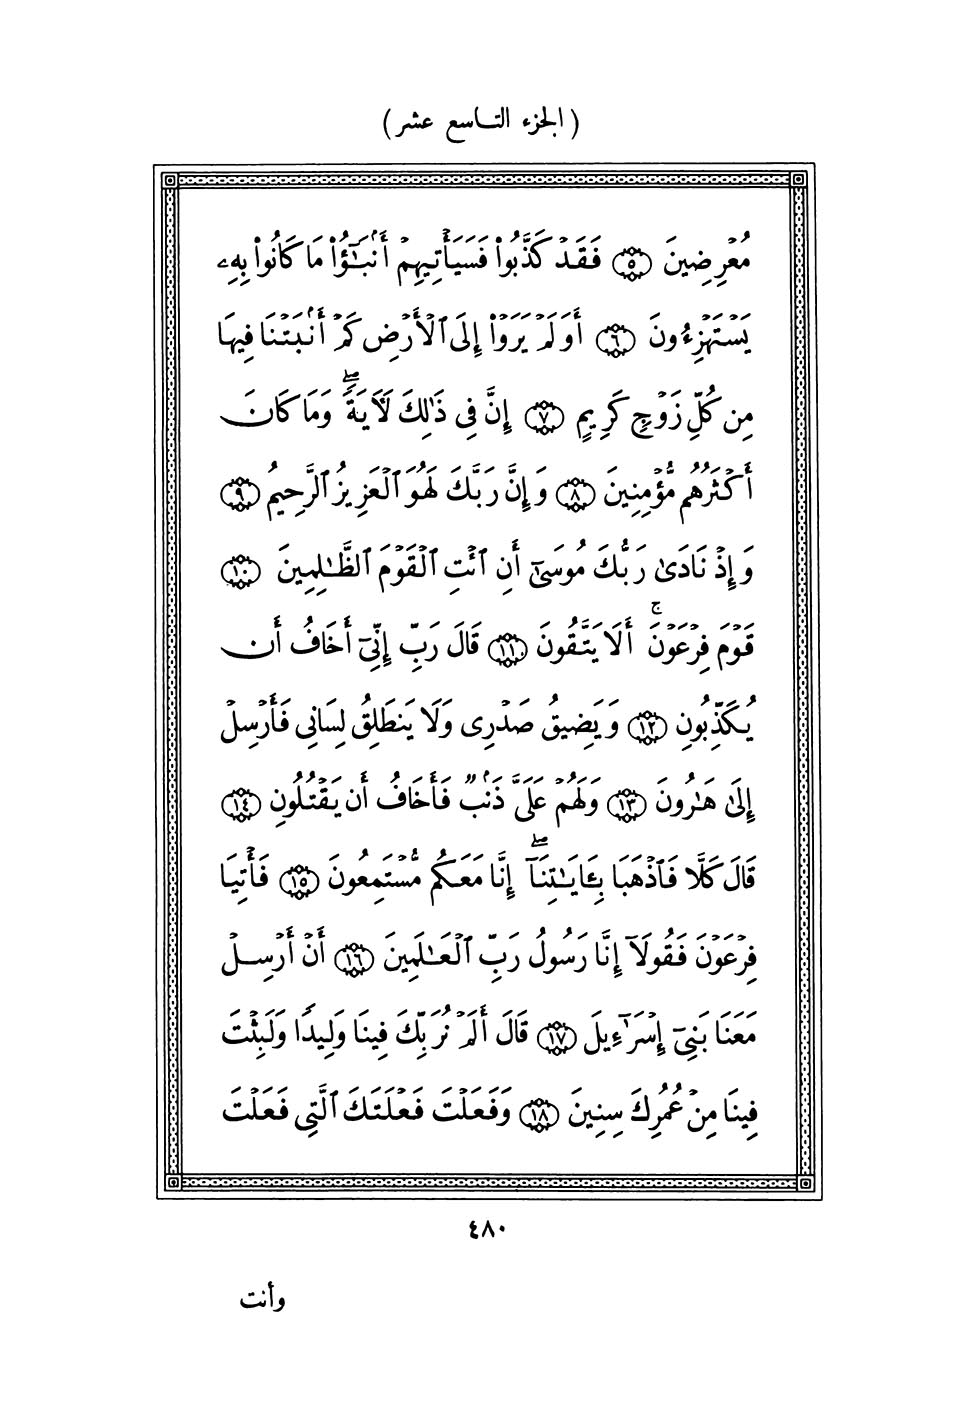 ( الجزء التاسع عشر )
مُعْرِضِينَ ٥ فَقَدْ كَذَّبُوا۟ فَسَيَأْتِيهِمْ أَنۢبَـٰٓؤُا۟ مَا كَانُوا۟ بِهِۦ
يَسْتَهْزِءُونَ ٦ أَوَلَمْ يَرَوْا۟ إِلَى ٱلْأَرْضِ كَمْ أَنۢبَتْنَا فِيهَا
مِن كُلِّ زَوْجٍ كَرِيمٍ ٧ إِنَّ فِى ذَٰلِكَ لَـَٔايَةًۖ وَمَا كَانَ
أَكْثَرُهُم مُّؤْمِنِينَ ٨ وَإِنَّ رَبَّكَ لَهُوَ ٱلْعَزِيزُ ٱلرَّحِيمُ ٩
وَإِذْ نَادَىٰ رَبُّكَ مُوسَىٰٓ أَنِ ٱئْتِ ٱلْقَوْمَ ٱلظَّـٰلِمِينَ ١٠
قَوْمَ فِرْعَوْنَۚ أَلَا يَتَّقُونَ ١١ قَالَ رَبِّ إِنِّىٓ أَخَافُ أَن
يُكَذِّبُونِ ١٢ وَيَضِيقُ صَدْرِى وَلَا يَنطَلِقُ لِسَانِى فَأَرْسِلْ
إِلَىٰ هَـٰرُونَ ١٣ وَلَهُمْ عَلَىَّ ذَنۢبٌ فَأَخَافُ أَن يَقْتُلُونِ ١٤
قَالَ كَلَّا فَٱذْهَبَا بِـَٔايَـٰتِنَآۖ إِنَّا مَعَكُم مُّسْتَمِعُونَ ١٥ فَأْتِيَا
فِرْعَوْنَ فَقُولَآ إِنَّا رَسُولُ رَبِّ ٱلْعَـٰلَمِينَ ١٦ أَنْ أَرْسِلْ
مَعَنَا بَنِىٓ إِسْرَٰٓءِيلَ ١٧ قَالَ أَلَمْ نُرَبِّكَ فِينَا وَلِيدًا وَلَبِثْتَ
فِينَا مِنْ عُمُرِكَ سِنِينَ ١٨ وَفَعَلْتَ فَعْلَتَكَ ٱلَّتِى فَعَلْتَ
٤٨٠
وأنت